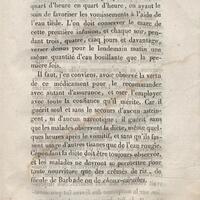 quart d'heure en quart d'heure, en ayant le
soin de favoriser les vomissements à l'aide de
l'eau tiède. L'on doit conserver le marc de
cette première infusion, et chaque soir, pen-
dant trois, quatre, cinq jours et davantage,
verser dessus pour le lendemain matin une
même quantité d'eau bouillante que la pre-
mière fois.
Il faut, j'en conviens, avoir observé la vertu
de ce médicament pour le recommander
avec autant d'assurance, et oser l'employer
avec toute la confiance qu'il mérite. Car il
guérit seul et sans le secours d'aucun astrin-
gent, ni d'aucun narcotique; il guérit sans
que les malades observent la diète, même quel-
ques heures après le vomitif, et sans qu'ils fas-
sent usage d'autres tisanes que de l'eau rougie.
Cependant la diète doit être toujours observée
et les malades ne devront se permettre pour
toute nourriture que des crèmes de riz, de
fécule de Barbade ou de